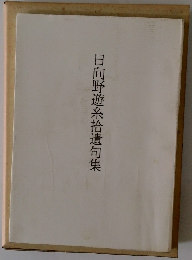 日向野遊糸拾遺句集